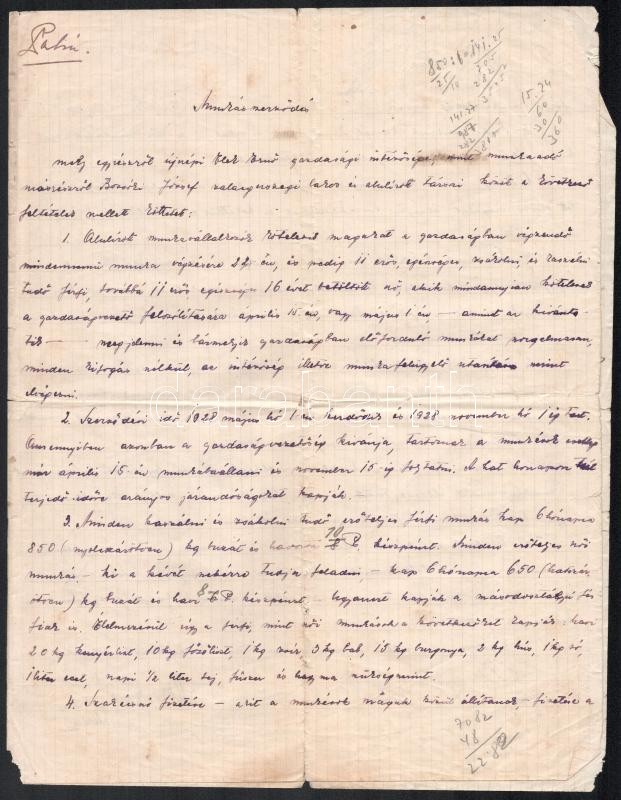 850:6=141.25
25/10 305
282
15.24
60
30
360
141.77
987
282
Munkás szerződés
mely egyrészről újnépi Elek Ernő gazdasági intézősége, mint munkaadó
másrészről Bozóki József zalaegerszegi lakos és alulírott társai közt a következő
feltételek mellett köttetett:
1. Alulírott munkavállalók kötelezik magukat a gazdaságban végzendő
mindennemű munka végzésére 22 én, és pedig 11 erős, egészséges, zsákolni, és kaszálni
tudó férfi, továbbá 11 erős egészséges 16 évet betöltött nő, akik mindannyian kötelesek
a gazdaságvezető felszólítására április 15 én, vagy május 1 én — amint az kívánta-
tik — megjelenni és bármelyik gazdaságban előforduló munkákat szorgalmasan,
minden kifogás nélkül, az intézőség illetve munkafelügyelő utasítása szerint
elvégezni.
2. Szerződési idő 1928 május hó 1 én kezdődik és 1928 november hó 1 ig tart.
Amennyiben azonban a gazdaságvezetőség kívánja, tartoznak a munkások esetleg
már április 15 én munkába állani és november 15 ig folytatni. A hat hónapon túl
terjedő időre arányos járandóságokat kapják. —
3. Minden kaszálni és zsákolni tudó erőteljes férfi munkás kap 6 hónapra
850 (nyolcszázötven) kg búzát és havonta 10 P. készpénzt. Minden erőteljes női
munkás — ki a kévét nekérre tudja feladni — kap 6 hónapra 650 (hatszáz-
ötven) kg búzát és havi 8 P. készpénzt. — Ugyanezt kapják a másodosztályú fér-
fiak is. Élelmezésül úgy a férfi, mint női munkások a következőket kapják: havi
20 kg kenyérliszt, 10 kg főzőliszt, 1 kg zsír, 3 kg bab, 15 kg burgonya, 2 kg hús, 1 kg só,
1 liter ecet, napi 1/2 liter tej, fűszer és hagyma szükség szerint.
4. Szakácsnő fizetése — akit a munkások maguk közül állítanak, — fizetése a
7082
48
22.82